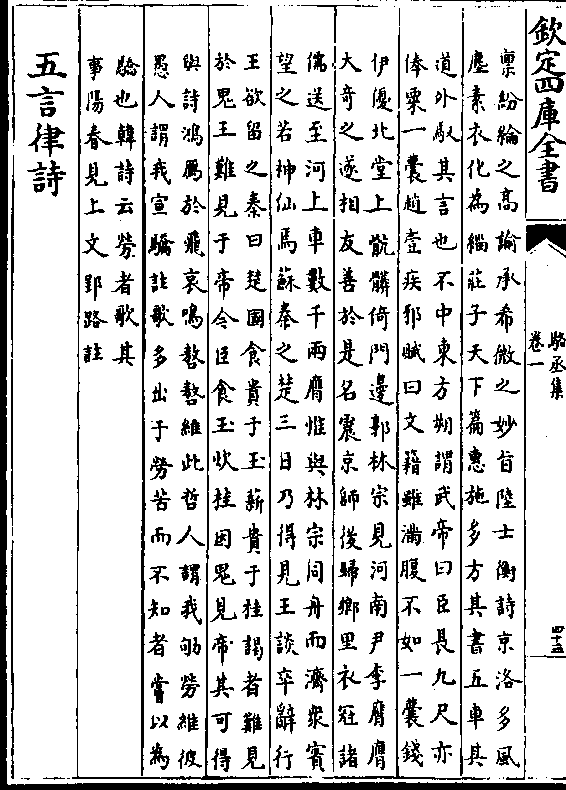 欽定四庫全書
駱丞集
卷一
四十五
禀紛綸之高諭承希微之妙旨陸士衡詩京洛多風
塵素衣化為緇莊子天下篇惠施多方其書五車其
道外馭其言也不中東方朔謂武帝曰臣長九尺亦
俸粟一囊趙壹疾邪賦曰文籍雖滿腹不如一囊錢
伊優北堂上骯髒倚門邊郭林宗見河南尹李膺膺
大奇之遂相友善於是名震京師後歸鄉里衣冠諸
儒送至河上車數千兩膺惟與林宗同舟而濟衆賓
望之若神仙焉蘇秦之楚三日乃得見王談卒辭行
王欲留之秦曰楚國食貴于玉薪貴于桂謁者難見
於鬼王難見于帝令臣食玉炊桂因鬼見帝其可得
與詩鴻鴈於飛哀鳴嗸嗸維此哲人謂我劬勞維彼
愚人謂我宣驕註歌多出于勞苦而不知者嘗以為
驕也韓詩云勞者歌其
事陽春見上文郢路註
五言律詩